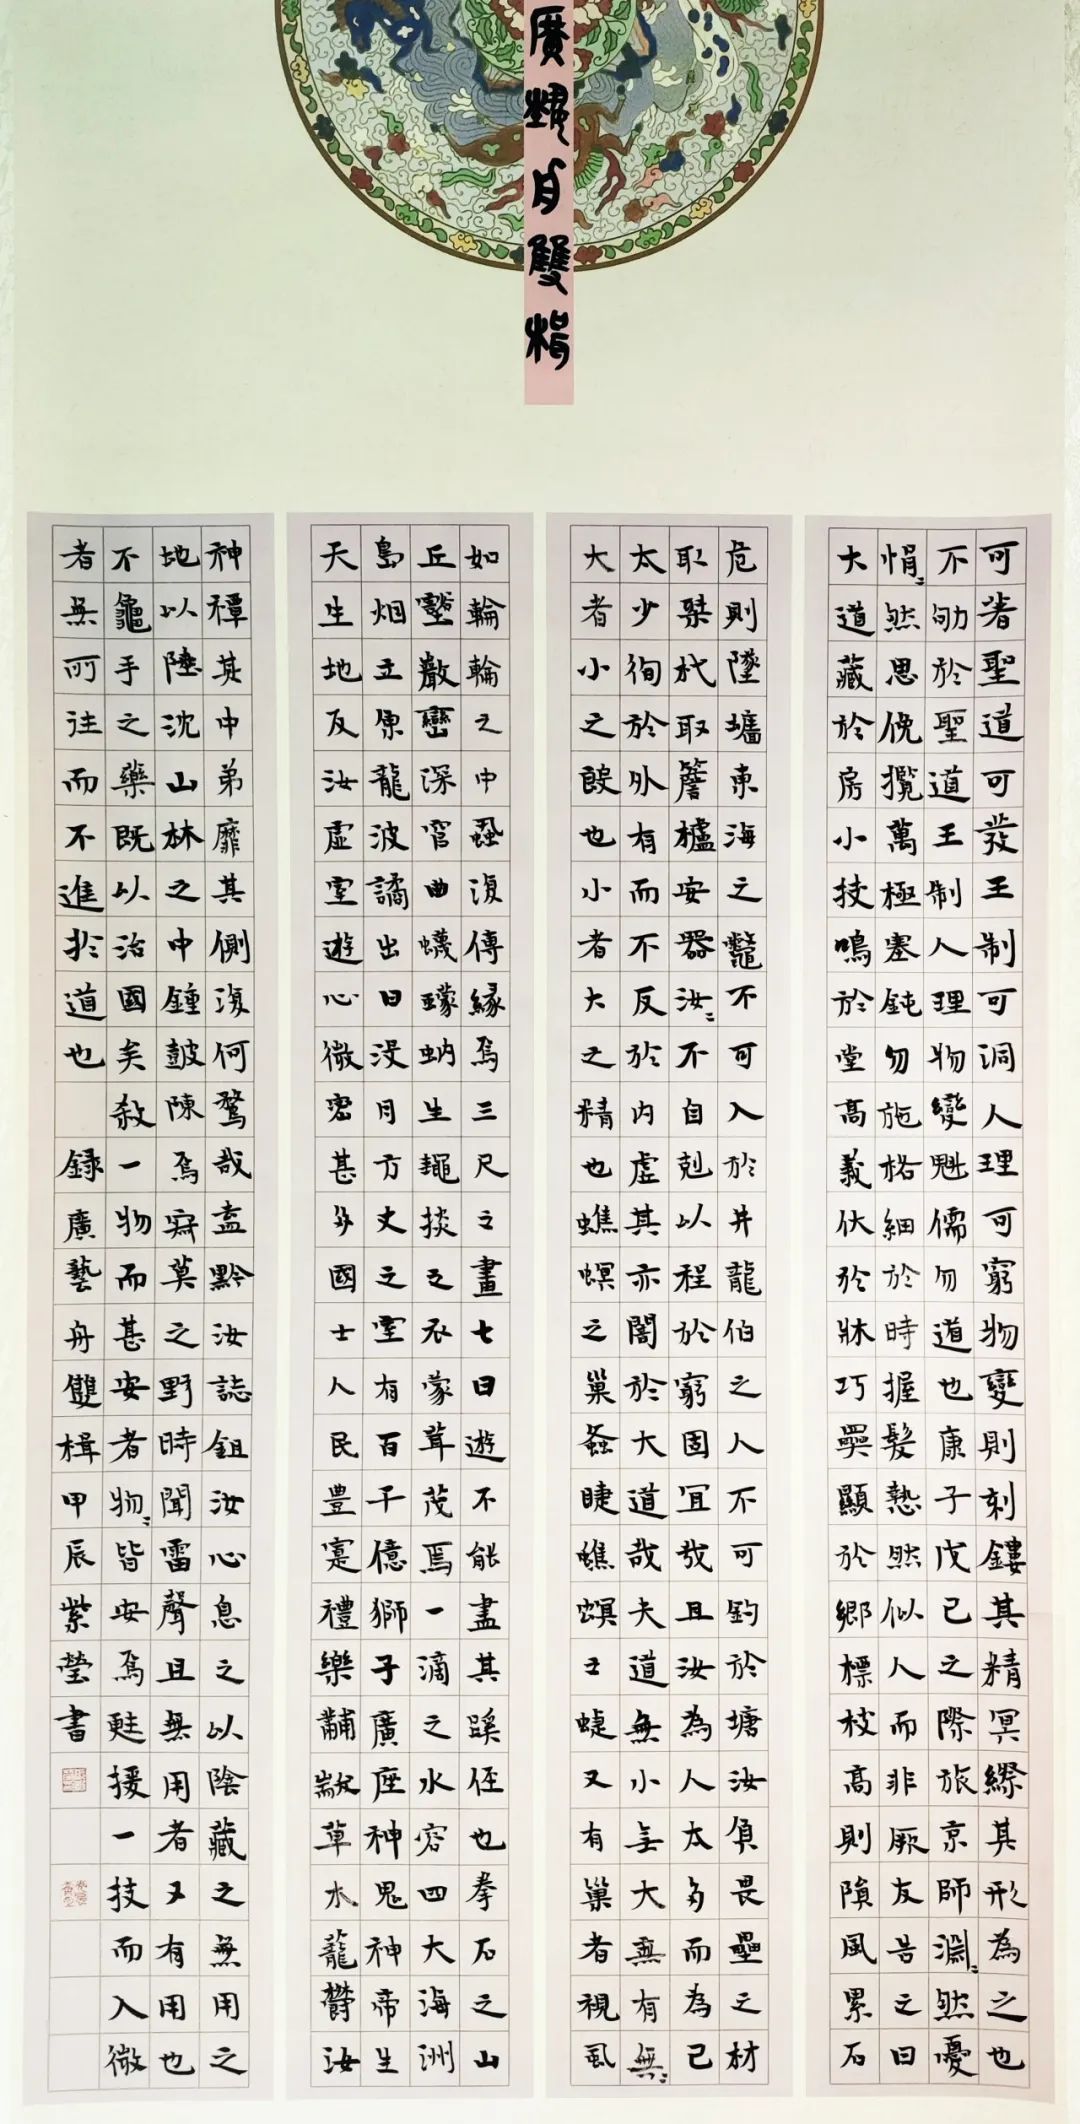 廣艺舟雙楫
可著聖道可發王制可洞人理可窮物變則刻鏤其精冥繆其形為之也
不劬於聖道王制人理物變魁儒勿道也康子戊己之際旅京師淵〻然憂
悁〻然思俛攬萬極塞鈍勿施格細於時握髮熱然似人而非厥友告之曰
大道藏於房小技鳴於堂高義伏於牀巧奰顯於鄉標枝高則隕風累石
危則墜牆東海之鱉不可入於井龍伯之人不可釣於塘汝負畏壘之材
取桀杙取簷櫨安器汝〻不自剋以程於窮固宜哉且汝為人太多而為己
太少徇於外有而不反於内虛其亦闇於大道哉夫道無小無大無有無〻
大者小之殷也小者大之精也蟭螟之巢蚤睫蟭螟之睫又有巢者視虱
如輪輪之中蝨復傳緣焉三尺之畫七日遊不能盡其蹊徑也拳石之山
丘壑巖巒深窅曲蠛蠓蚋生蠅掞之衣蒙茸茂焉一滴之水容四大海洲
島烟立魚龍波譎出日沒月方丈之室有百千億獅子廣座神鬼神帝生
天生地反汝虛室遊心微密甚多國士人民豐寔禮樂黼黻草木龍鬱汝
神禪其中弟靡其側復何騖哉盍黔汝誌鉏汝心息之以陰藏之無用之
地以陸沈山林之中鍾鼓陳焉寂莫之野時聞雷聲且無用者又有用也
不龜手之藥既以治國矣殺一物而甚安者物〻皆安焉蘇援一技而入微
者無所往而不進於道也 錄廣藝舟雙楫甲辰紫瑩書